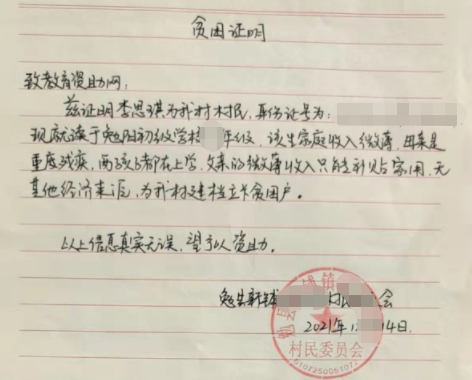 贫困证明
致教育资助网：
兹证明李思琪为我村村民，身份证号为：
现就读于勉阳初级学校 年级，该生家庭收入微薄，母亲是
重度残疾，两孩子都在上学，父亲的微薄收入只能补贴家用，无
其他经济来源，为我村建档立卡贫困户。
以上信息真实无误，望予以资助。
勉县新铺 村民 会
2021年1 14日.
勉县 镇
村民委员会